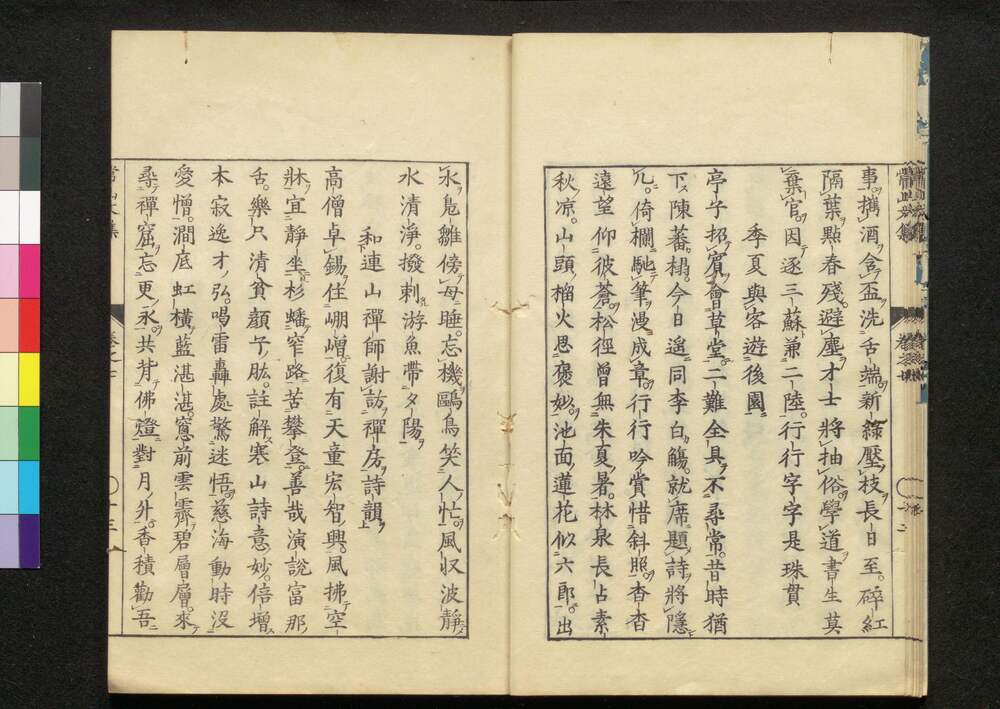 事携酒食盃洗舌端新綠壓枝長日至碎紅
隔葉點春殘避塵才士將抽俗學道書生莫
棄官因逐三蘇兼二陸行行字字是珠貫
季夏與客遊後園
亭子招賓會草堂二難全具不尋常昔時猶
下陳蕃榻今日遙同李白觴就席題詩將隱
几倚欄馳筆漫成章行行吟賞惜斜照杳杳
遠望仰彼蒼松徑曾無朱夏暑林泉長占素
秋凉山頭榴火思褒妙池面蓮花似六郎出
水鳧雛傍母睡忘機鷗鳥笑人忙風収波靜
水清淨撥剌游魚帶夕陽
和連山禪師謝訪禪房詩韻
高僧卓錫住崚嶒復有天童宏智興風拂空
牀宜靜坐杉蟠窄路苦攀登善哉演說富那
舌樂尺清貧顔子肱註解寒山詩意妙倍增
本寂逸才弘喝雷轟處驚迷悟慈海動時沒
愛憎澗底虹橫藍湛湛窓前雲霽碧層層來
尋禪窟忘更永共背佛燈對月外香積勸吾